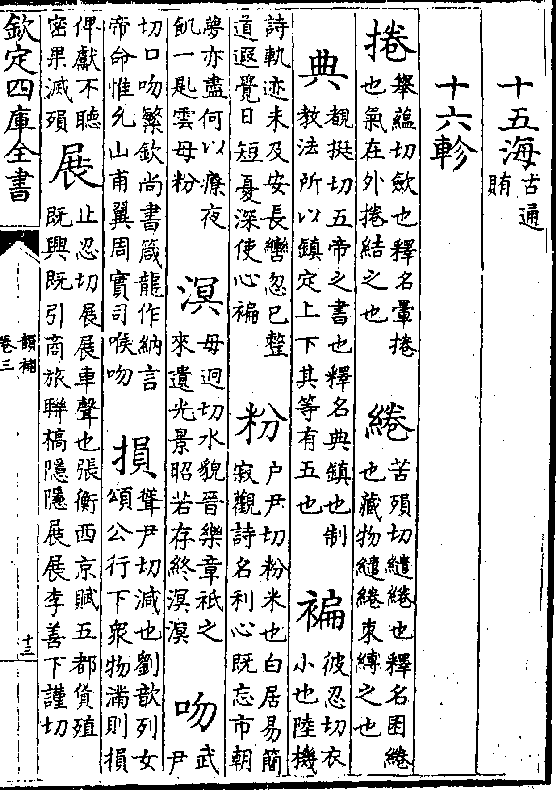 十五海古通賄
十六軫
捲舉蘊切斂也釋名睪捲也氣在外捲結之也
綣苦殞切繾綣也釋名囷綣也藏物繾綣束縛之也
典覩挺切五帝之書也釋名典鎮也制教法所以鎮定上下其等有五也
褊彼忍切衣小也陸機詩軌迹未及安長轡忽已整道遐覺日短憂深使心褊
粉户尹切粉米也白居易簡寂觀詩名利心既忘市朝夢亦盡何以療夜飢一匙雲母粉
溟母迥切水貌晉樂章祗之來遺光景昭若存終溟溟
吻武尹切口吻繁欽尚書箴龍作納言帝命惟允山甫翼周實司喉吻
損聳尹切減也劉歆列女頌公行下衆物滿則損俾獻不聽密果滅殞
展止忍切展展車聲也張衡西京賦五都貨殖既興既引商旅聯槅隱隱展展李善下謹切
欽定四庫全書
韻補
卷三
十三